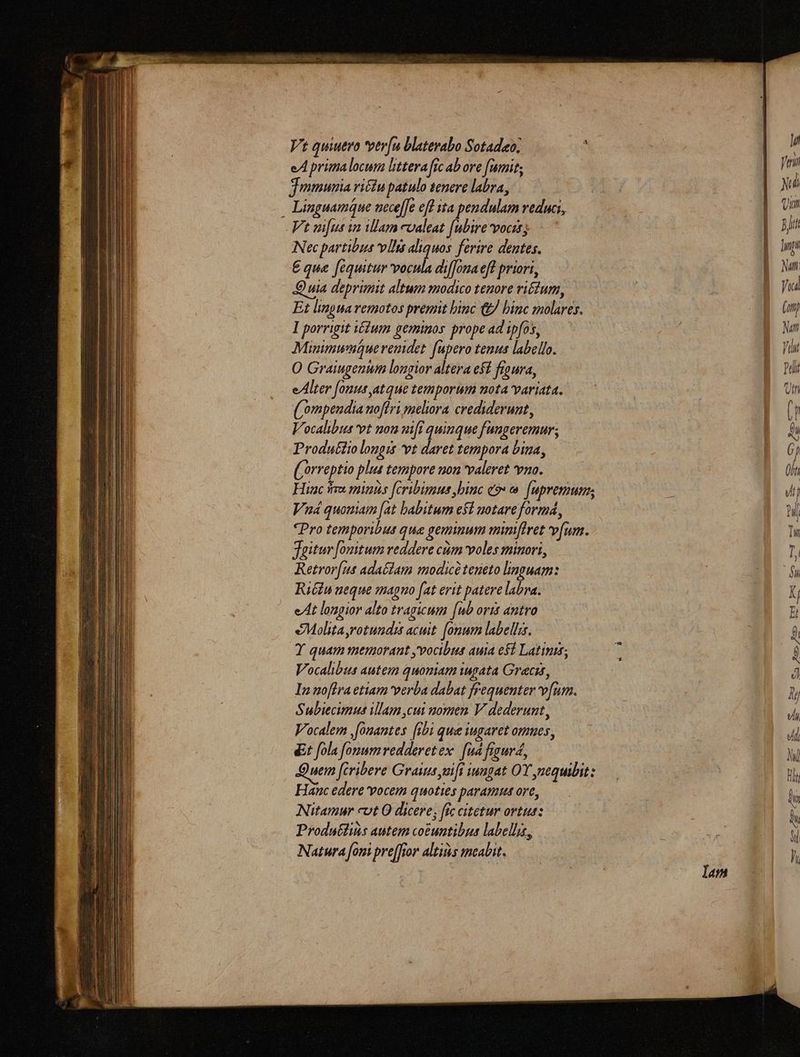 Vt quiuero verſu blaterabo Sotadeo,
A prima locum littera ſic ab ore ſumit,
Immunia rictu patulo tenere labra,
Linguamque neceſſe eſt ita pendulam reduci,
Vt niſus in illam valeat ſubire vocis,
Nec partibus vllis aliquos ferire dentes.
E que ſequitur vocula diſſona eſt priori,
Quia deprimit altum modico tenore rictum,
Et lingua remotos premit hinc & hinc molares.
I porrigit ictum geminos prope ad ipſos,
Minimumque renidet ſupero tenus labello.
O Graiugenûm longior altera eſt figura,
Alter ſonus, atque temporum nota variata.
Compendia noſtri meliora crediderunt,
Vocalibus vt non niſi quinque fungeremur;
Productio longis vt daret tempora bina,
Correptio plus tempore non valeret vno.
Hinc minùs ſcribimus, hinc ſupremum;
Vná quoniam ſat habitum eſt notare formâ,
Pro temporibus que geminum miniſtret vſum.
Igitur ſonitum reddere cùm voles minori,
Retrorſus adactam modicè teneto linguam:
Rictu neque magno ſat erit patere labra.
At longior alto tragicum ſub oris antro
Molita, rotundis acuit ſonum labellis.
Y quam memorant, vocibus auia eſt Latinis;
Vocalibus autem quoniam iugata Græcis,
In noſtra etiam verba dabat frequenter vſum.
Subiecimus illam, cui nomen V dederunt,
Vocalem, ſonantes ſibi que iugaret omnes,
Et ſola ſonum redderet ex ſuâ figurâ,
Quem ſcribere Graius, niſi iungat OY, nequibit:
Hanc edere vocem quoties paramus ore,
Nitamur vt O dicere, ſic citetur ortus:
Productiùs autem coëuntibus labellis,
Natura ſoni preſſior altiùs meabit.
Iam